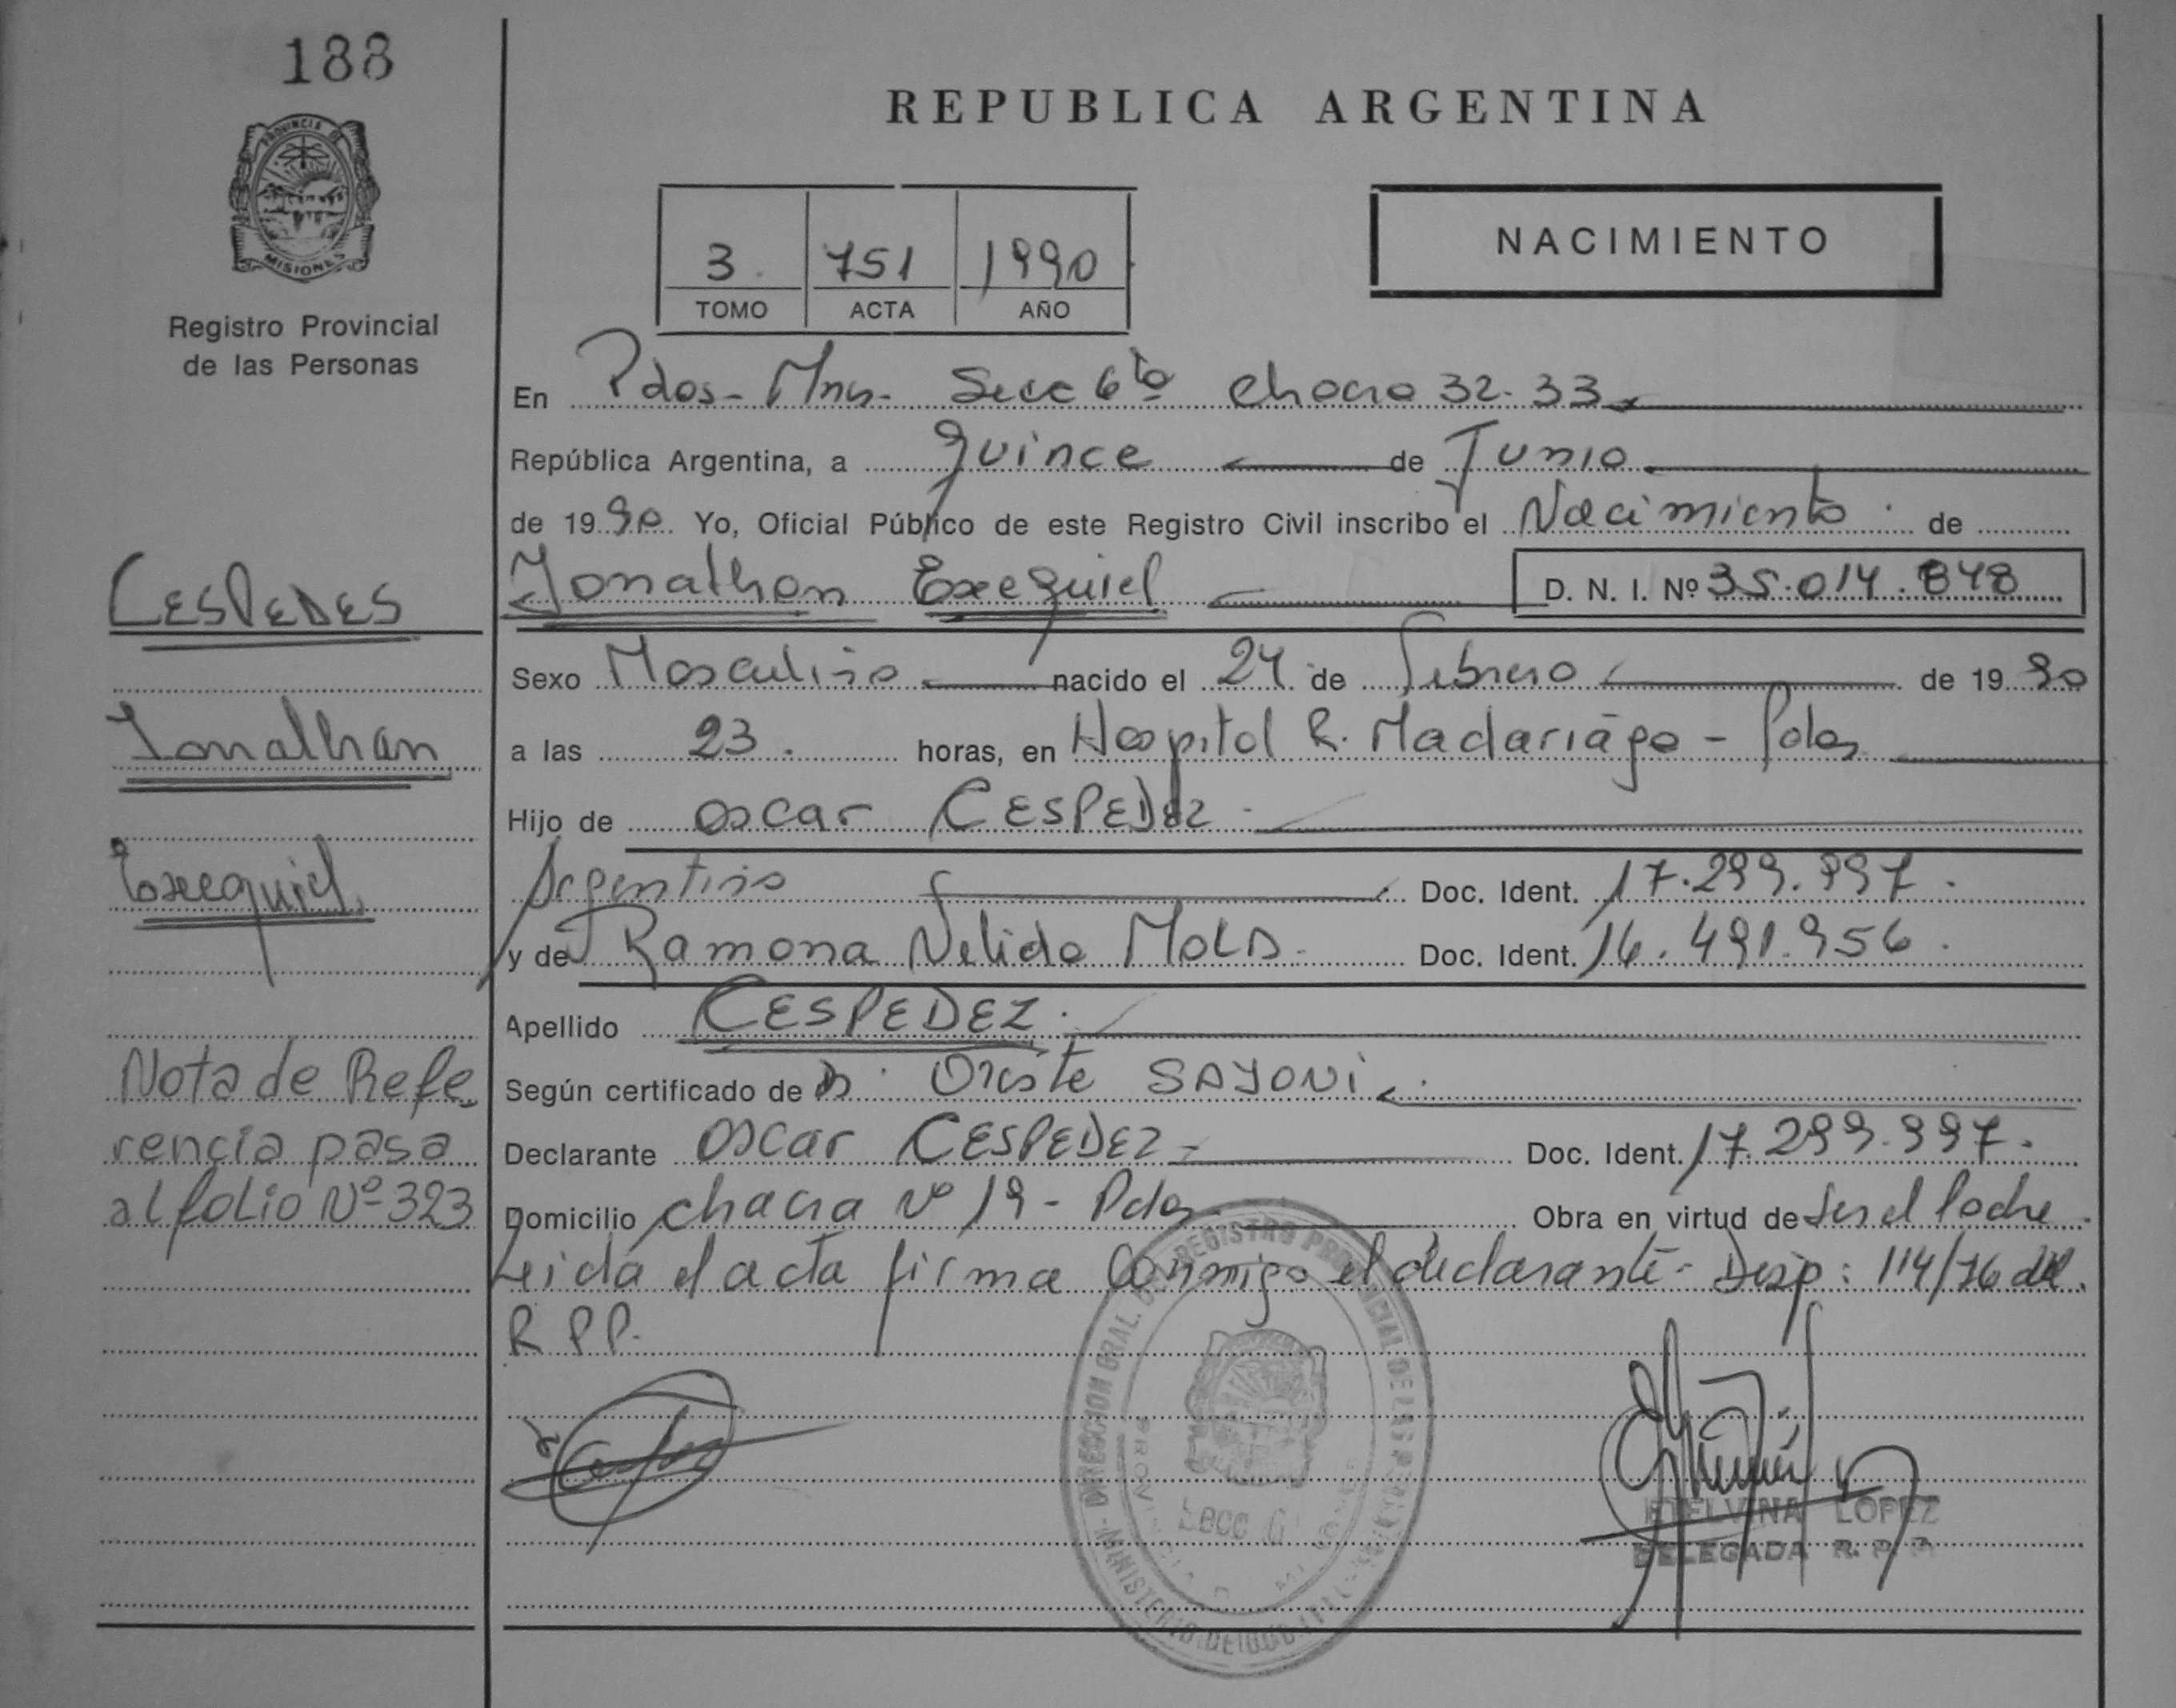 188
REPUBLICA ARGENTINA
PROVINCIA DE
MISIONES
Registro Provincial
de las Personas
3 751 1990
TOMO ACTA AÑO
NACIMIENTO
En Pdos - Mns - Secc 6ta Chacra 32-33
República Argentina, a quince de Junio
de 1990 Yo, Oficial Público de este Registro Civil inscribo el Nacimiento de
Jonathan Exequiel D. N. I. Nº 35.014.848
Sexo Masculino nacido el 24 de Febrero de 1990
a las 23 horas, en Hospital R. Madariaga - Pdas
Hijo de Oscar CESPEDEZ
Argentino Doc. Ident. 17.299.997
y de Ramona Nelida MOLA Doc. Ident. 16.491.956
Apellido CESPEDEZ
Según certificado de Dr. Oreste
Declarante Oscar CESPEDEZ Doc. Ident. 17.299.997
Domicilio chacra nº 19 - Pdas Obra en virtud de Ser el Padre
Leida el acta firma Conmigo el declarante - Disp: 114/76 del
R P P.
CESPEDES
Jonathan
Exequiel
Nota de Refe
rencia pasa
al folio Nº 323
MINISTERIO DE - DIRECCION GRAL. DEL REGISTRO PROVINCIAL DE LAS PERSONAS
Secc 6
ETELVINA LOPEZ
DELEGADA R. P. P.